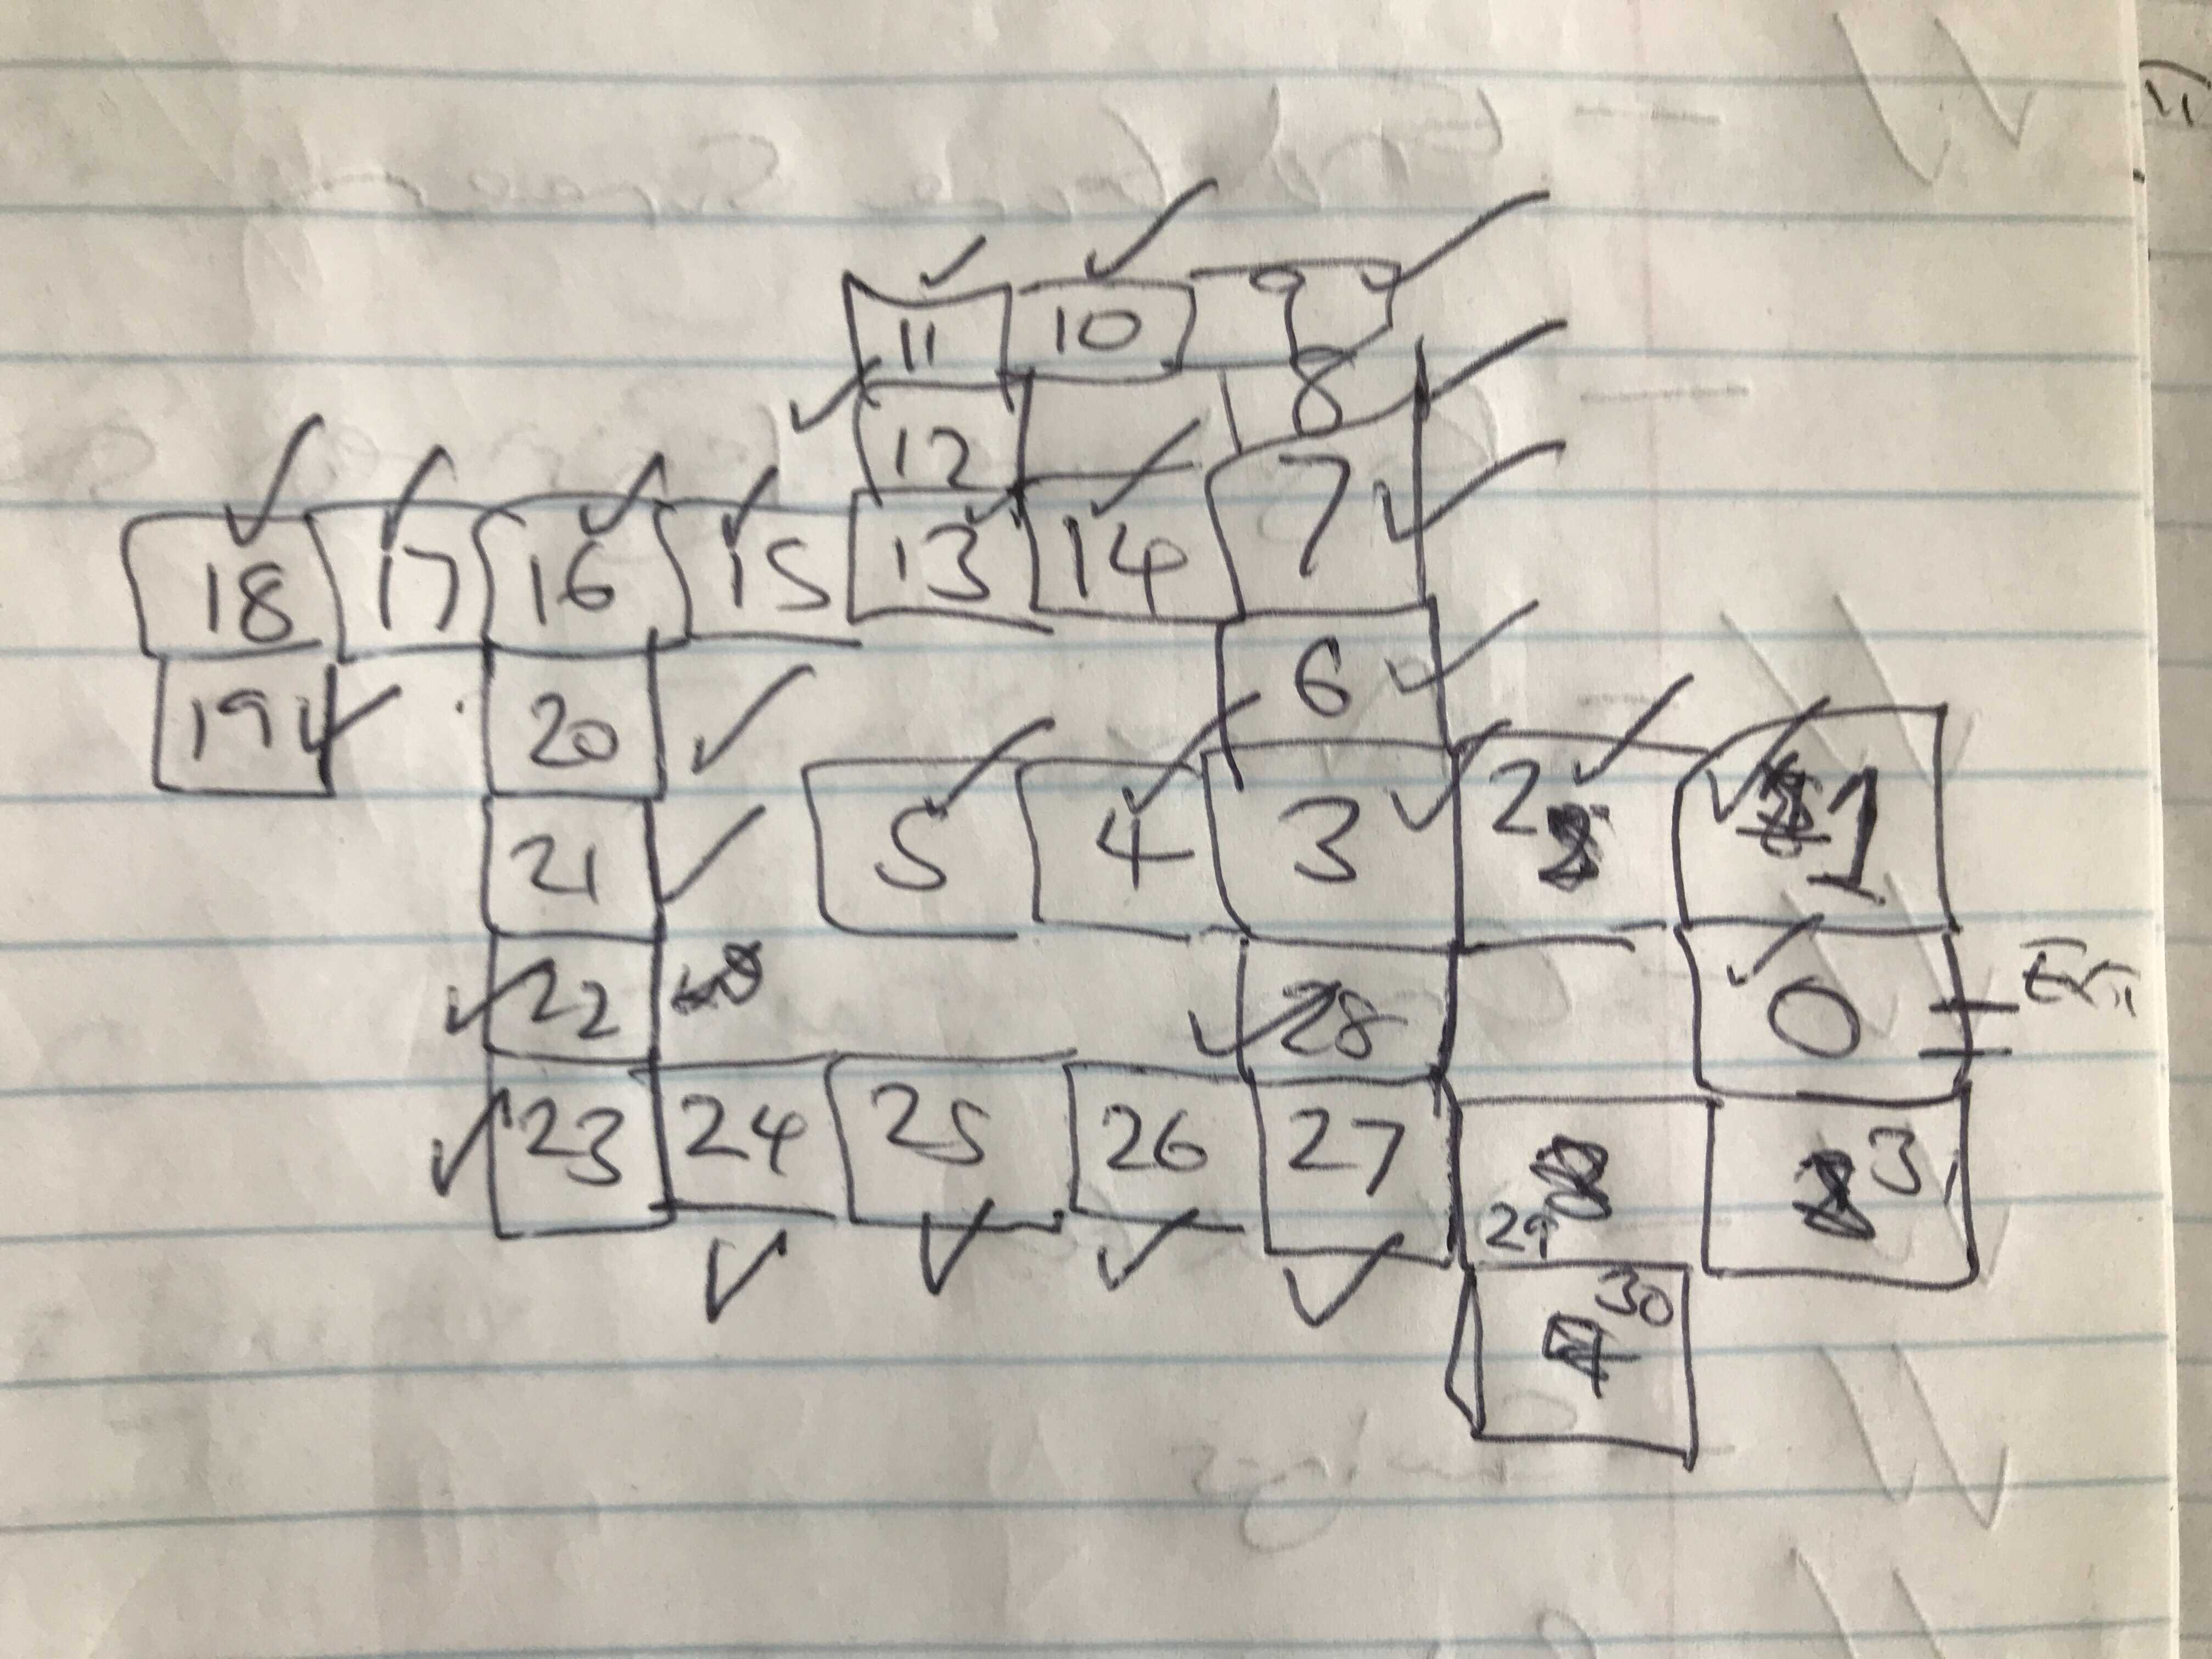 11 10 9
8
12
18 17 16 15 13 14 7
6
19 20
21 5 4 3 2 1
22 28 0
23 24 25 26 27 3
29
30